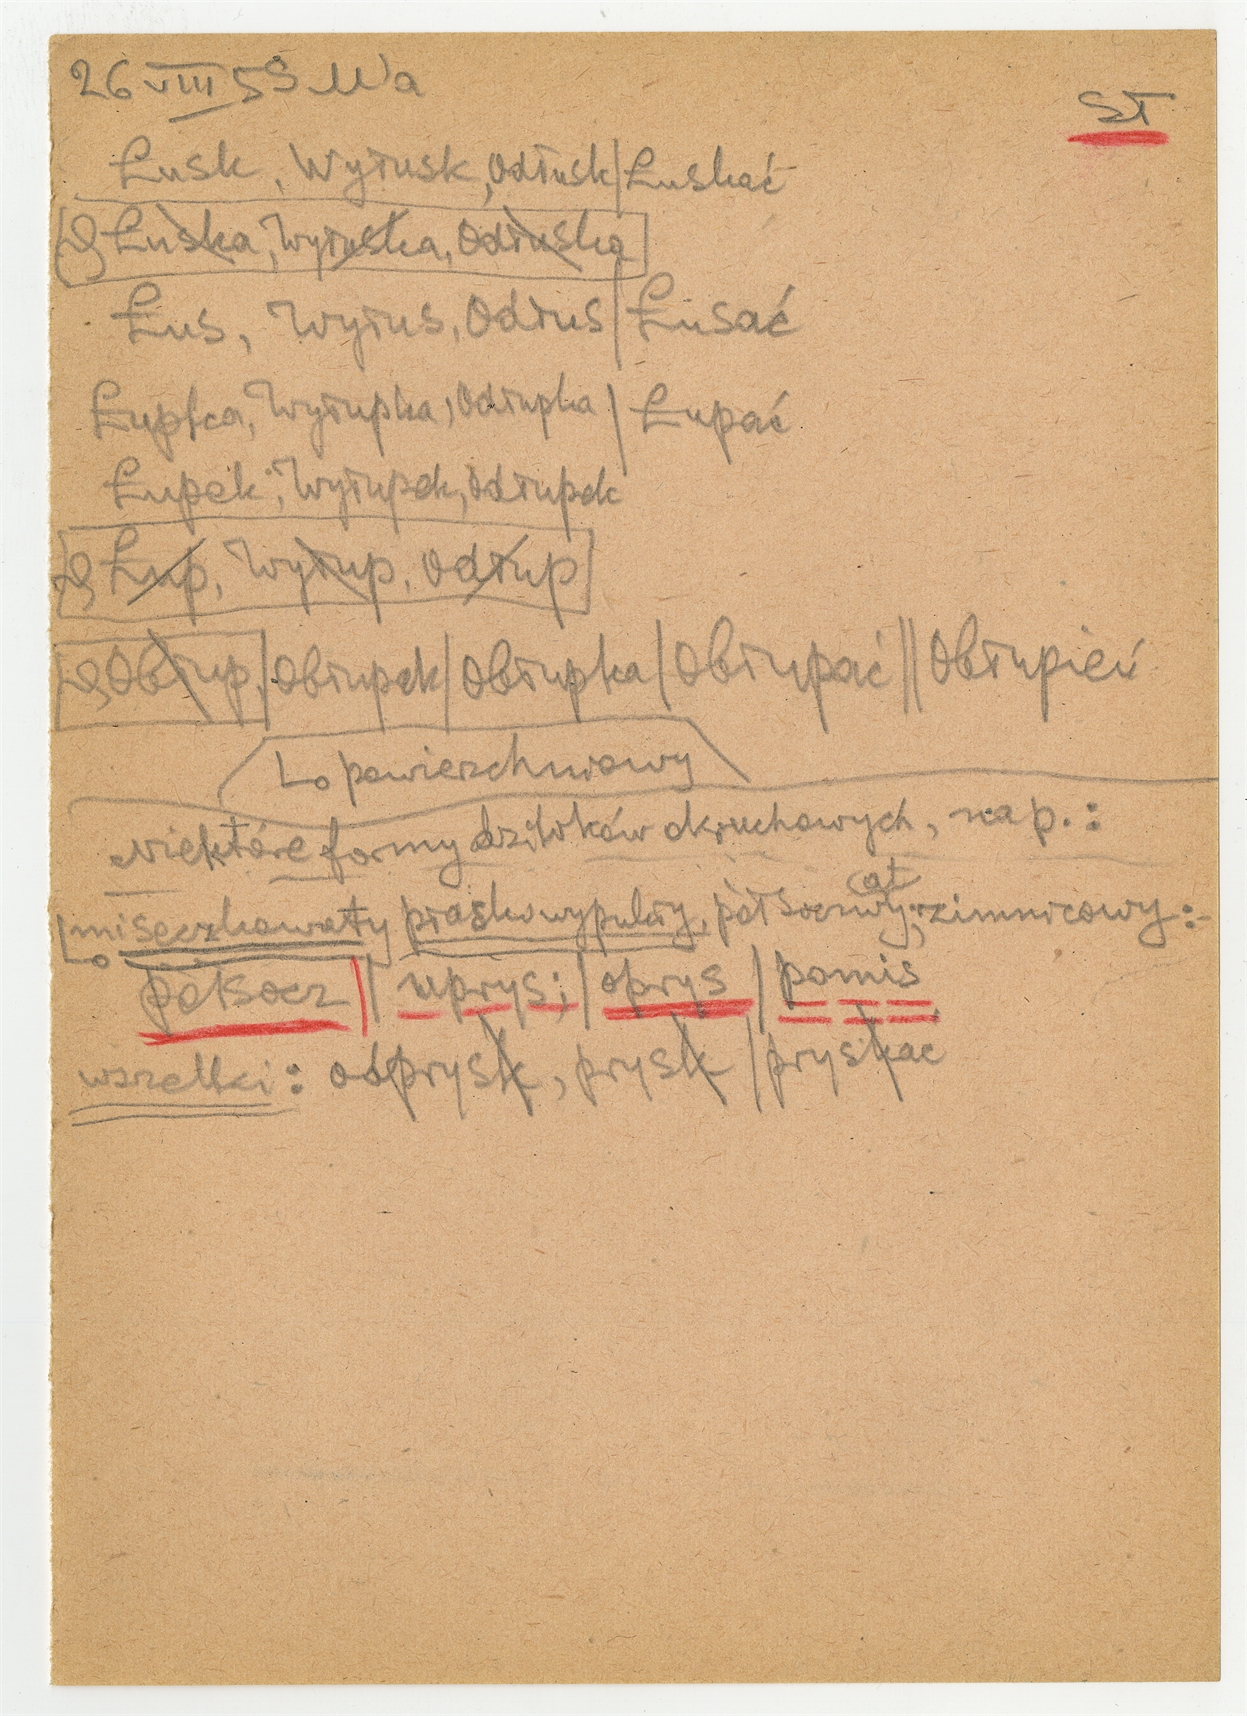 26 VIII 59 Wa
SŁ
Łusk, Wyłusk, Odłusk | Łuskać
Łuska, Wyłuska, Odłuska
Łus, Wyłus, Odłus | Łusać
Łupka, Wyłupka, Odłupka | Łupać
Łupek, Wyłupek, Odłupek
Łup, Wyłup, Odłup
Obłup, | Obłupek | Obłupka | Obłupać || Obłupień
powierzchniowy
Niektóre formy dziłoków okruchowych, nap.:
at
miseczkowaty płaskowypukły, półsoczwy, zimnicowy:
półsocz || uprys; | oprys | pomis
wszelki: odprysk, prysk | pryskać